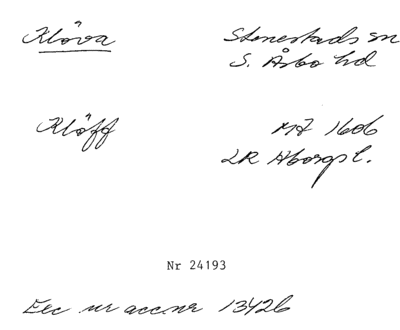 Klöva Stenestads sn
S. Åsbo hd
Klöff MJ 1606
LR Aborgs l.
Nr 24193
Exc ur acc.nr 13426